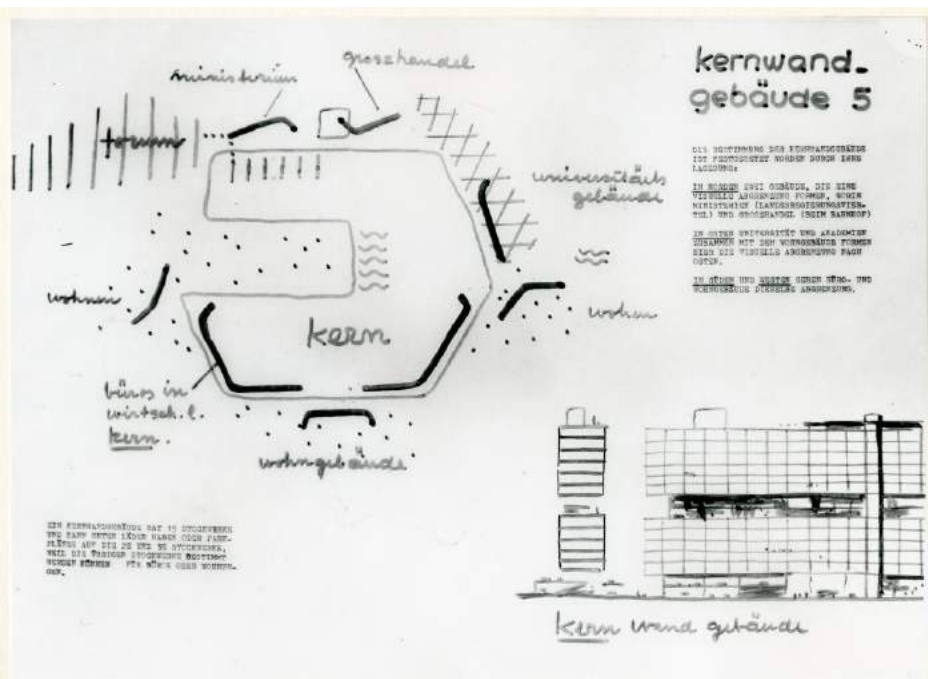 kernwand-
gebäude 5
DIE BESTIMMUNG DER KERNWANDGEBÄUDE
IST FESTGESETZT WORDEN DURCH IHRE
IM NORDEN ZWEI GEBÄUDE, DIE EINE
VISUELLE ABGRENZUNG FORMEN, WORIN
MINISTERIEN (LANDESREGIERUNGSVIER-
TEL) UND GROSSHANDEL (BEIM BAHNHOF)
IM OSTEN UNIVERSITÄT UND AKADEMIEN
ZUSAMMEN MIT DEM WOHNGEBÄUDE FORMEN
HIER DIE VISUELLE ABGRENZUNG NACH
OSTEN.
IM SÜDEN UND WESTEN GEBEN BÜRO- UND
WOHNGEBÄUDE DIESELBE ABGRENZUNG.
ministerium
groszhandel
forum
universitäts
gebäude
wohnen
wohnen
kern
büros in
wirtsch.l.
kern.
wohngebäude
EIN KERNWANDGEBÄUDE HAT 15 STOCKWERKE
UND KANN UNTEN LÄDEN HABEN ODER PARK-
PLÄTZE AUF DIE 2E UND 3E STOCKWERKE,
WEIL DIE ÜBRIGEN STOCKWERKE BESTIMMT
WERDEN KÖNNEN FÜR BÜROS ODER WOHNUN-
GEN.
kern wand gebäude